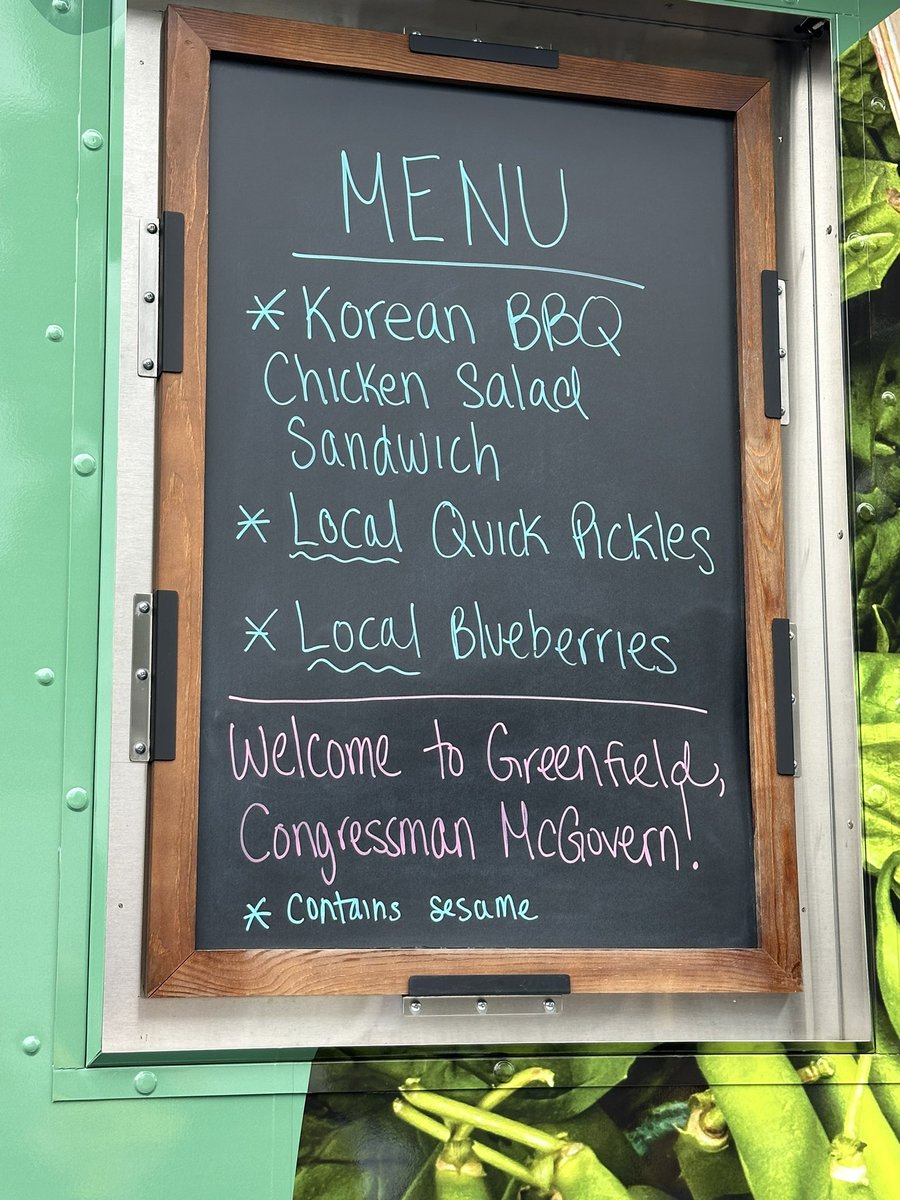 MENU
* Korean BBQ
Chicken Salad
Sandwich
* Local Quick Pickles
* Local Blueberries
Welcome to Greenfield,
Congressman McGovern!
* contains sesame